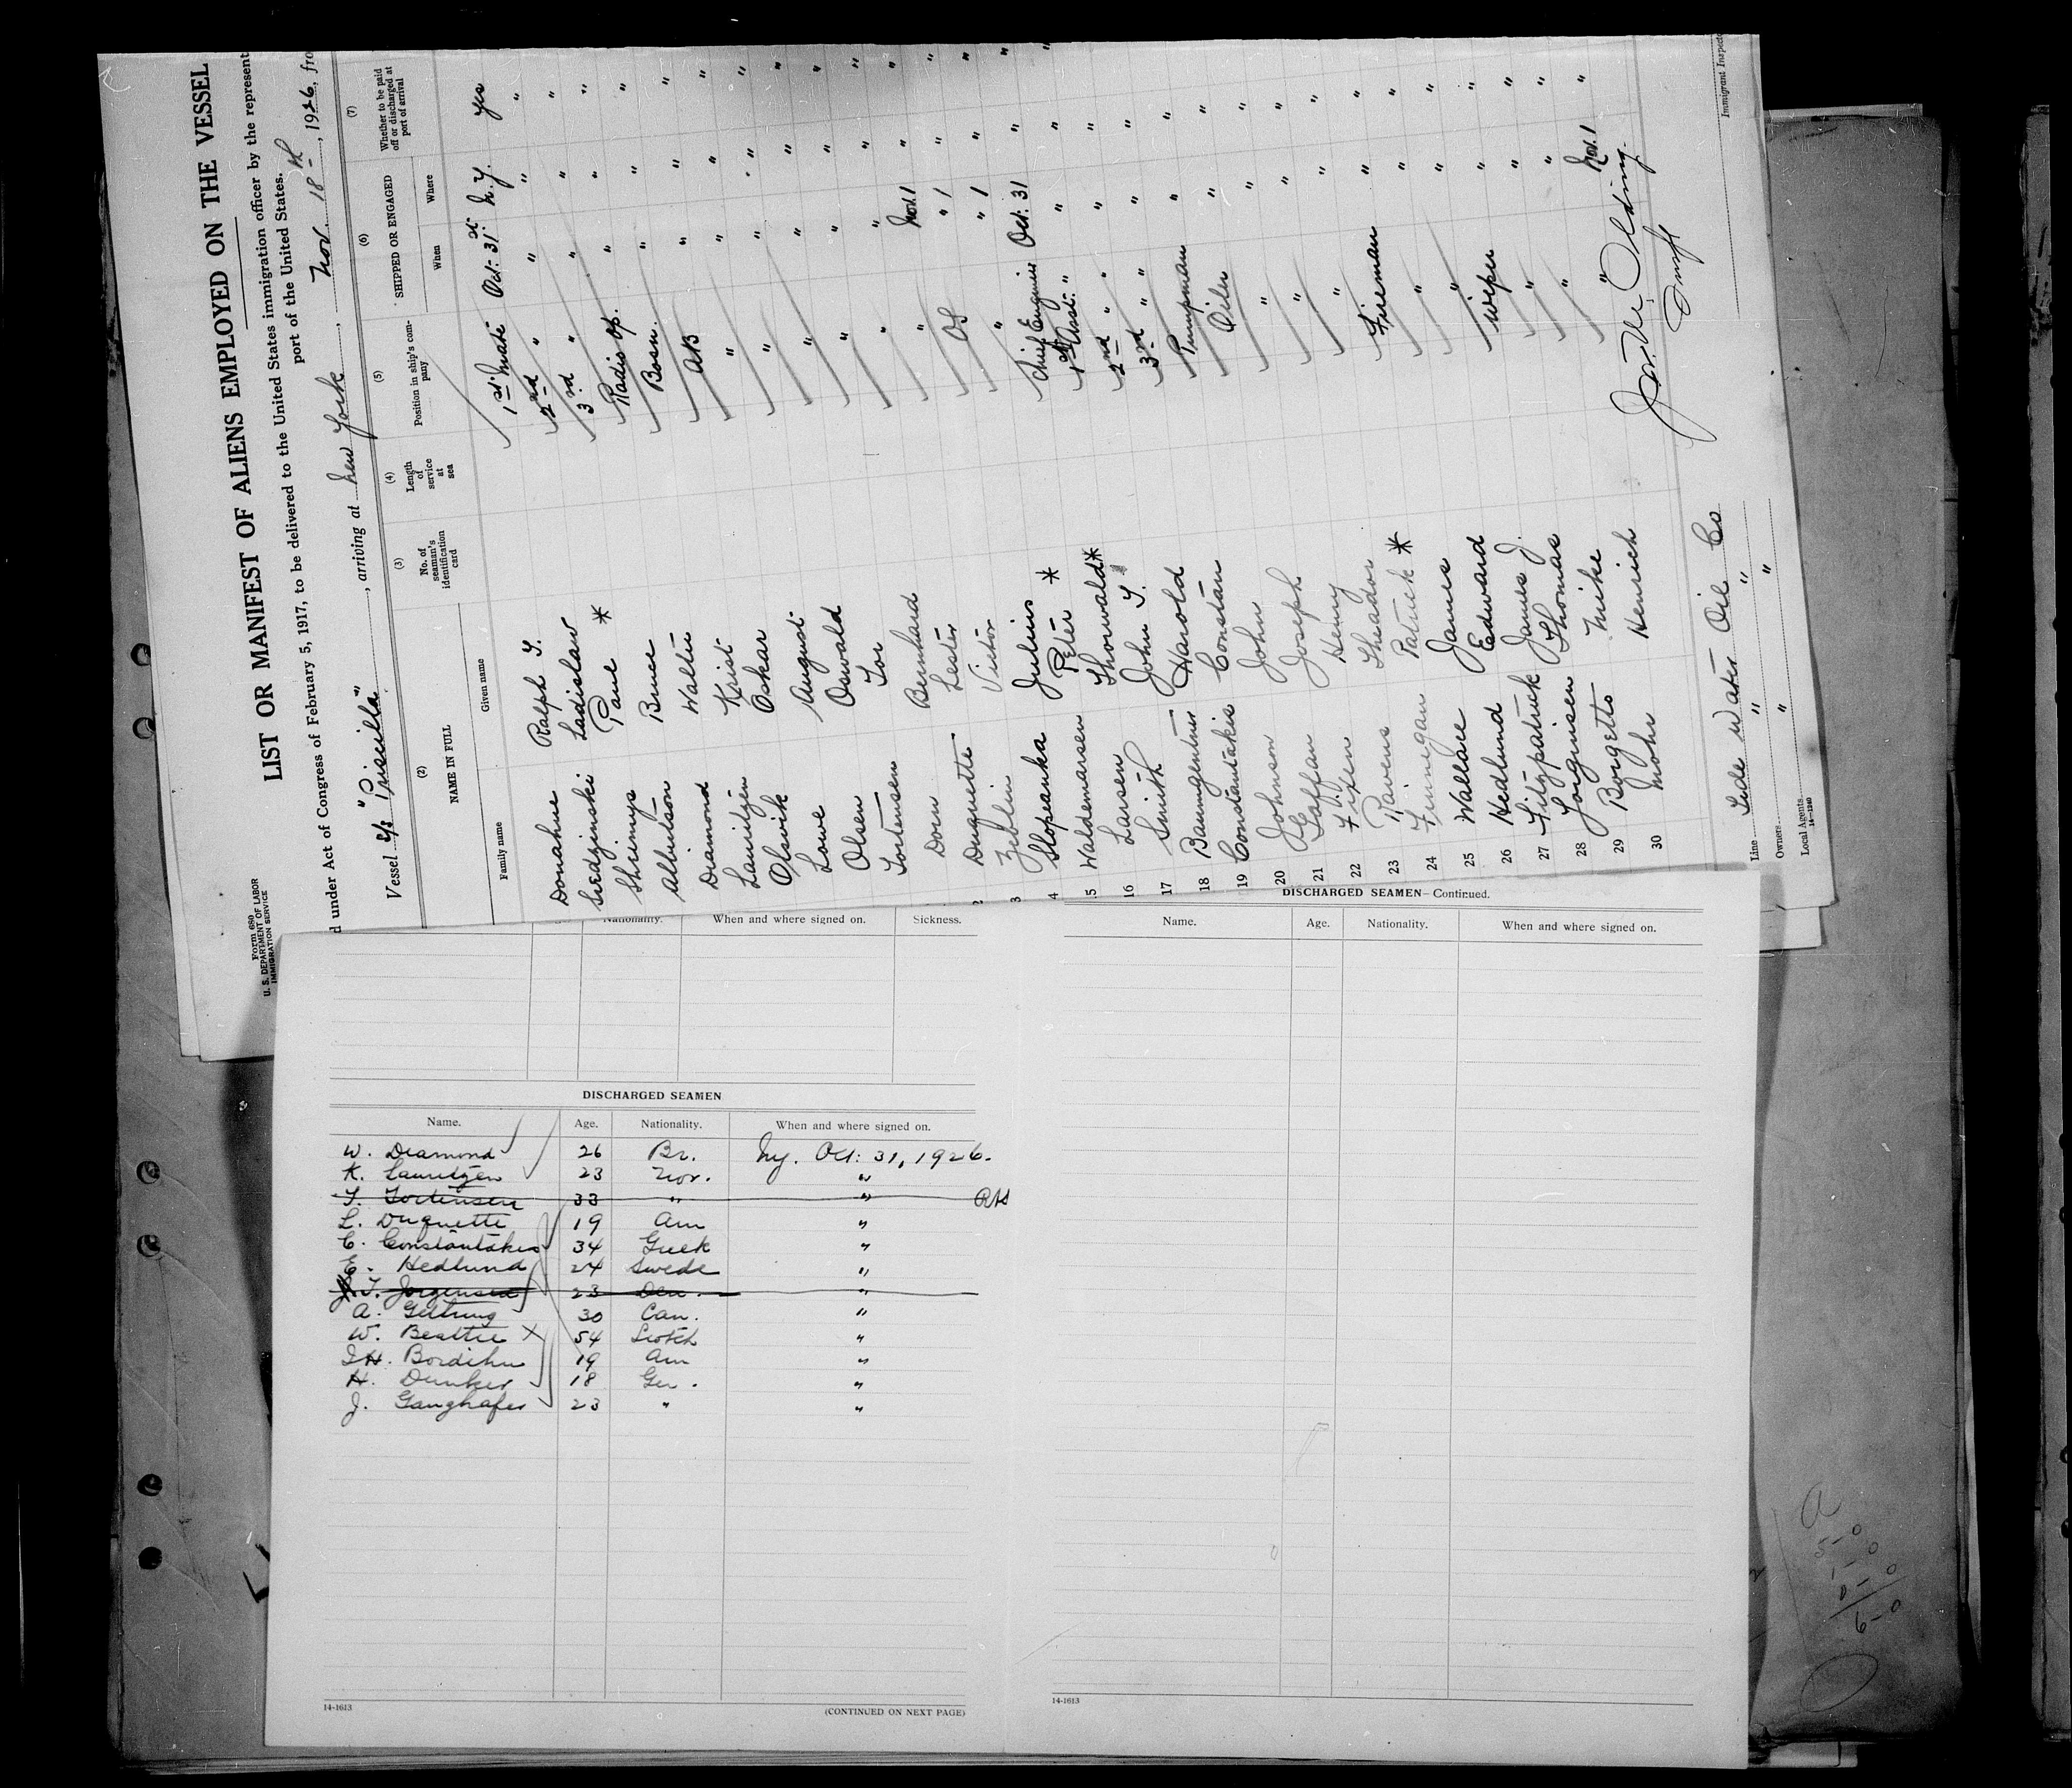 Form 680
U. S. DEPARTMENT OF LABOR
IMMIGRATION SERVICE
LIST OR MANIFEST OF ALIENS EMPLOYED ON THE VESSEL
d under Act of Congress of February 5, 1917, to be delivered to the United States immigration officer by the represent
port of the United States.
Vessel S/S "Priscilla", arriving at New York, Nov. 18th, 1926, fro
(2) (3) (4) (5) (6) (7)
NAME IN FULL
No. of seaman's identification card
Length of service at sea
Position in ship's company
SHIPPED OR ENGAGED
Whether to be paid off or discharged at port of arrival
Family name Given name When Where
Donahue Ralph T. 1st Mate Oct. 31st N.Y. yes
Ladislaw 2nd " " " "
Shrimys Paul * 3rd " " " "
Albutson Bruce Radio Op. " " "
Diamond Walter Bosn. " " "
Lauritzen Krist AB " " "
Olsvik Oskar " " " "
Lowe August " " " "
Olsen Oswald " " " "
Tortensen Tor " " " "
Dorn Bernhard " " " "
2 Duquette Lester " Nov. 1 " "
3 Victor OS " 1 " "
4 Slopeanka Julius " " 1 " "
15 Waldemarsen Peter * Chief Engineer Oct. 31 " "
16 Larsen Thorwald * 1st Asst. " " " "
17 Smith John T. 2nd " " " "
18 Baumgentner Harold 3rd " " " "
19 Constantakis Constan Pumpman " "
20 Johnson John Oiler " "
21 Gaffan Joseph " " "
22 Fixen Henry " " "
23 Pavens Theador " " "
24 Finnegan Patrick * Fireman " "
25 Wallace James " " "
26 Hedlund Edward " " "
27 Fitzpatrick James J. Wiper " "
28 Jorginsen Thomas " " "
29 Borgetto Mike " " "
30 Mohr Henrich " Nov. 1 "
Line Tide Water Oil Co
Owners " " "
Local Agents " "
14-1240
Immigrant Inspecto
Nationality. When and where signed on. Sickness.
DISCHARGED SEAMEN
Name. Age. Nationality. When and where signed on.
W. Diamond 26 Br. Ny. Oct. 31, 1926.
K. Lauritzen 23 Nor. "
T. Tortensen 33 " " RH
L. Duquette 19 Am "
C. Constantakis 34 Greek "
E. Hedlund 24 Swede "
T. Jorgensen 23 Den. "
A. Gettring 30 Can. "
W. Beattie X 54 Scotch "
I H. Bordihn 19 Am "
H. Dunker 18 Ger. "
J. Ganghafer 23 " "
14-1613
(CONTINUED ON NEXT PAGE)
DISCHARGED SEAMEN—Continued.
Name. Age. Nationality. When and where signed on.
14-1613
a
5-0
1-0
0-0
6-0